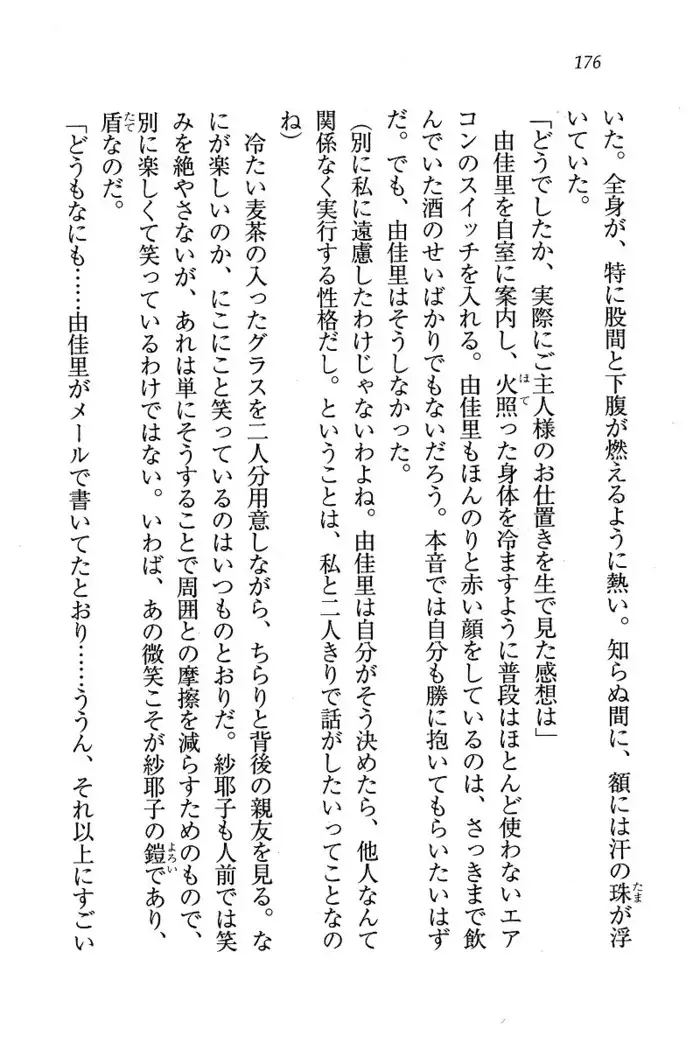 176
いた。全身が、特に股間と下腹が燃えるように熱い。知らぬ間に、額には汗の珠が浮
いていた。
「どうでしたか、実際にご主人様のお仕置きを生で見た感想は」
由佳里を自室に案内し、火照った身体を冷ますように普段はほとんど使わないエア
コンのスイッチを入れる。由佳里もほんのりと赤い顔をしているのは、さっきまで飲
んでいた酒のせいばかりでもないだろう。本音では自分も勝に抱いてもらいたいはず
だ。でも、由佳里はそうしなかった。
(別に私に遠慮したわけじゃないわよね。由佳里は自分がそう決めたら、他人なんて
関係なく実行する性格だし。ということは、私と二人きりで話がしたいってことなの
ね)
冷たい麦茶の入ったグラスを二人分用意しながら、ちらりと背後の親友を見る。な
にが楽しいのか、にこにこと笑っているのはいつものとおりだ。紗耶子も人前では笑
みを絶やさないが、あれは単にそうすることで周囲との摩擦を減らすためのもので、
別に楽しくて笑っているわけではない。いわば、あの微笑こそが紗耶子の鎧であり、
盾なのだ。
「どうもなにも……由佳里がメールで書いてたとおり……ううん、それ以上にすごい